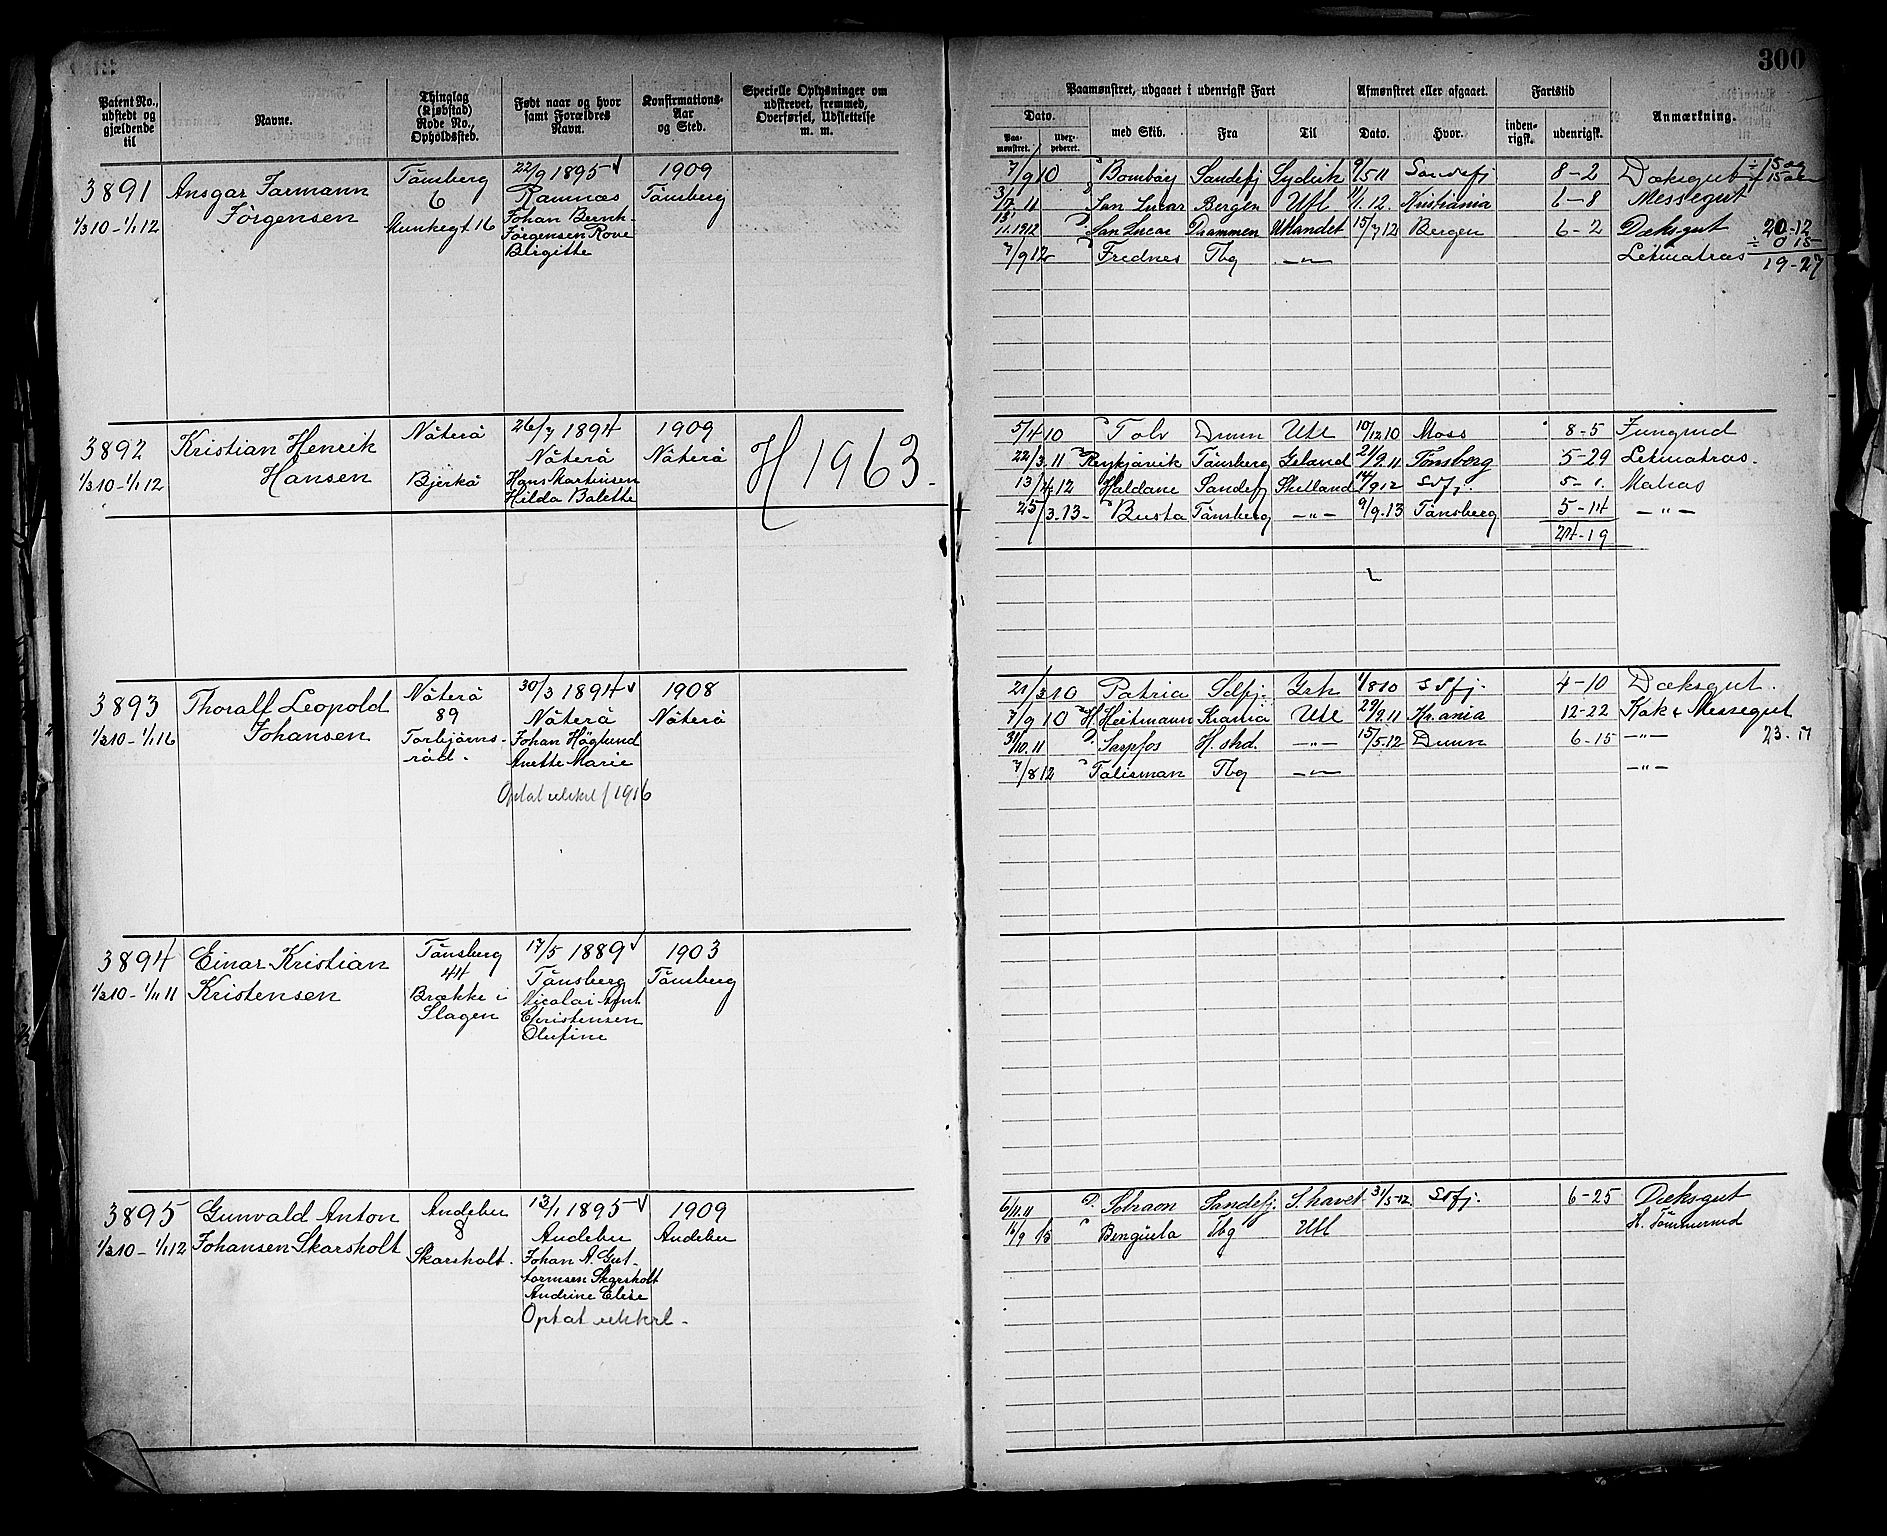 300
Patent No., udstedt og gjældende til
Navne.
Thinglag (Kjøbstad) Rode No., Opholdssted.
Født naar og hvor samt Forældres Navn.
Konfirmations- Aar og Sted.
Specielle Oplysninger om udskrevet, fremmed, Overførsel, Udslettelse m. m.
Paamønstret, udgaaet i udenrigsk Fart
Afmønstret eller afgaaet.
Fartstid
Anmærkning.
Dato.
Paa- mønstret.
med Skib.
Fra
Til
Dato.
Hvor.
inden- rigsk.
udenrigsk.
3891
1/3 10 - 1/1 12
Ansgar Jarmann
Jörgensen
Tönsberg
6
Munkegt 16
22/9 1895
Ramnæs
Johan Bernh.
Jörgensen Rove
Birgitte
1909
Tönsberg
7/9 10 Bombay Sandefj Sydish 9/5 11 Sandefj 8-2 Dæksgut
San Lucar Bergen Utl 11/1. 12. Kristiania 6-8 Messegut
11.1912 San Lucar Drammen Utlandet 15/7 12 Bergen 6-2 Dæksgut 20-12
÷ 0 15
7/9 12 Frednes Tbg —"— Letmatros 19-27
3892
1/3 10 - 1/1 12
Kristian Henrik
Hansen
Nöterö
Bjerkö
26/7 1894
Nöterö
Hans Martinsen
Hilda Balette
1909
Nöterö
H 1963.
5/4 10 Tolv Drmn Utl 10/12 10 Moss 8-5 Jungmd
22/3. 11 Reykjavik Tönsberg Island 21/9. 11 Tönsberg 5-29 Letmatros.
13/4. 12 Haldane Sandefj Shetland 14/9 12 Sdfj 5- 1. Matros
25/3. 13. Busta Tönsberg —"— 9/9. 13 Tönsberg 5-14 —"—
24-19
3893
1/3 10 - 1/1 16
Thoralf Leopold
Johansen
Nöterö
89
Torbjörns-
röd.
30/3 1894
Nöterö
Johan Höglund
Anette Marie
Optat uekkl / 1916
1908
Nöterö
21/3 10 Patria Sdfj. Ish 1/8 10 Sdfj. 4-10 Dæksgut.
7/9 10 H. Heitmann Krania Utl 29/9. 11 Kr.ania 12-22 Kok & Messegut
31/10. 11 Sarpfos H.shd. —"— 15/5. 12 Drmn 6-15 —"— 23. 17
7/8 12 Talisman Tbg —"— —"—
3894
1/3 10 - 1/11 11
Einar Kristian
Kristensen
Tönsberg
44
Brække i
Slagen
17/5 1889
Tönsberg
Nicolai Arnt
Christensen
Olufine
1903
Tönsberg
3895
1/3 10 - 1/1 12
Gunvald Anton
Johansen Skarsholt
Andebu
8
Skarsholt.
13/1 1895
Andebu
Johan A. Gut-
tormsen Skarsholt
Andrine Elise
Optat uekkl.
1909
Andebu
6/11. 11 Solraon Sandefj. S. havet 31/5-12 Sdfj. 6-25 Dæksgut
16/9 13 Benguela Tbg Utl H. Tömmermd